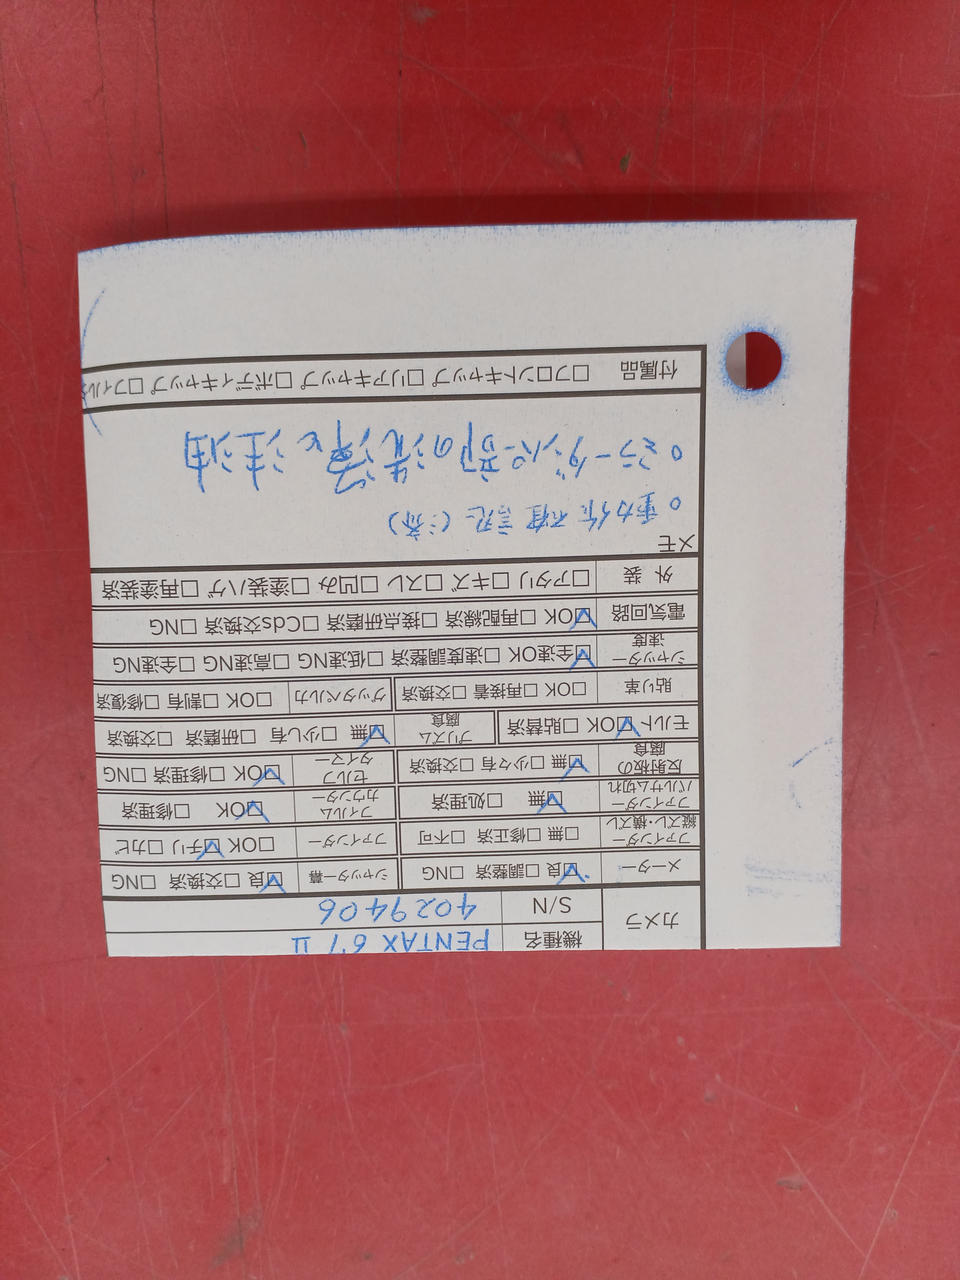 カメラ 機種名 PENTAX 67 II
S/N 4029406
メーター ☑良 □調整済 □NG シャッター幕 ☑良 □交換済 □NG
ファインダー 縦ズレ・横ズレ □無 □修正済 □不可 ファインダー □OK ☑チリ □カビ
ファインダー バルサム切れ ☑無 □処理済 フィルム カウンター ☑OK □修理済
反射板の腐食 ☑無 □少々有 □交換済 セルフ タイマー ☑OK □修理済 □NG
モルト ☑OK □貼替済 プリズム腐食 ☑無 □少し有 □研磨済 □交換済
貼り革 □OK □再接着 □交換済 グッタペルカ □OK □割有 □修復済
シャッター速度 ☑全速OK □速度調整済 □低速NG □高速NG □全速NG
電気回路 ☑OK □再配線済 □接点研磨済 □CdS交換済 □NG
外装 □アタリ □キズ □スレ □凹み □塗装ハゲ □再塗装済
メモ
○動作確認(済)
○ミラーダンパー部の洗浄と注油
付属品 □フロントキャップ □リアキャップ □ボディキャップ □フィル